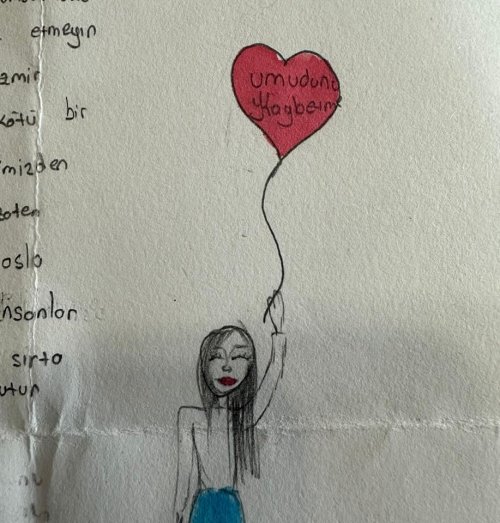 etmeyin
kötü bir
mizden
zaten
asla
insanlar
sırta
umudunu
Kaybetme